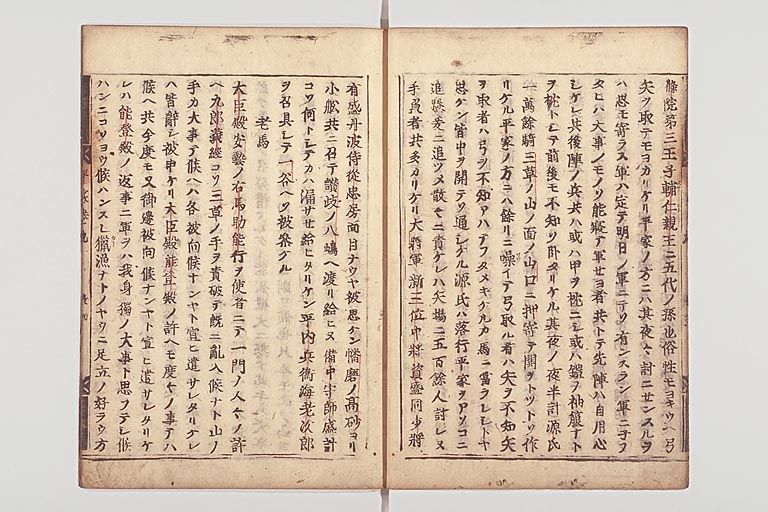 條院第三王子輔仁親王ニ五代ノ孫也俗性モヨキウヘ弓
矢ヲ取テモヨカリケリ平家ノ方ニハ其夜々討ニセンスルヲ
ハ思モ寄ラス軍ハ定テ明日ノ軍ニテソ有ンスラン軍ニ子ヲ
タヒハ大事ノモノソ能寢テ軍せヨ者共トテ先陣ハ自用心
シケレ共後陣ノ兵共ハ或ハ甲ヲ枕ニシ或ハ鎧ヲ袖籠ナト
ヲ枕トシテ前後モ不知ソ臥タリケル其夜ノ夜半計源氏
一萬餘騎三草ノ山ノ西ノ山口ニ押寄テ閧ヲトツトソ作
リケル平家ノ方ニハ餘リニ噪イテ弓取ル者ハ矢ヲ不知矢
ヲ取者ハ弓ヲ不知アハテフタメキケルカ馬ニ當ラレシトヤ
思ケン皆中ヲ開テソ通シケル源氏ハ落行平家ヲアソコニ
追懸爰ニ追ツメ散々ニ責ケレハ矢場ニ五百餘人討レヌ
手負者共多カリケリ大將軍新三位中將資盛同少將
有盛丹波侍從忠房面目ナウヤ被思ケン播磨ノ高砂ヨリ
小舩共ニ召テ讃岐ノ八嶋ヘ渡リ給ヒヌ備中守師盛計
コソ何トシテカハ漏サせ給ヒタリケン平内兵衛海老次郎
ヲ召具シテ一谷ヘソ被參ケル
老馬
大臣殿安藝ノ右馬助能行ヲ使者ニテ一門ノ人々ノ許
ヘ九郎義經コソ三草ノ手ヲ責破テ既ニ亂入候ナト山ノ
手カ大事テ候ヘハ各被向候ナンヤト宣ヒ遣サレタリケレ
ハ皆辭シ被申ケリ大臣殿能登殿ノ許ヘモ度々ノ事テハ
候ヘ共今度モ又御邊被向候ナンヤト宣ヒ遣サレタリケ
レハ能登殿ノ返事ニ軍ヲハ我身獨ノ大事ト思フテシ候
ハンニコソヨウ候ハンスレ獵漁ナトノヤウニ足立ノ好ラウ方